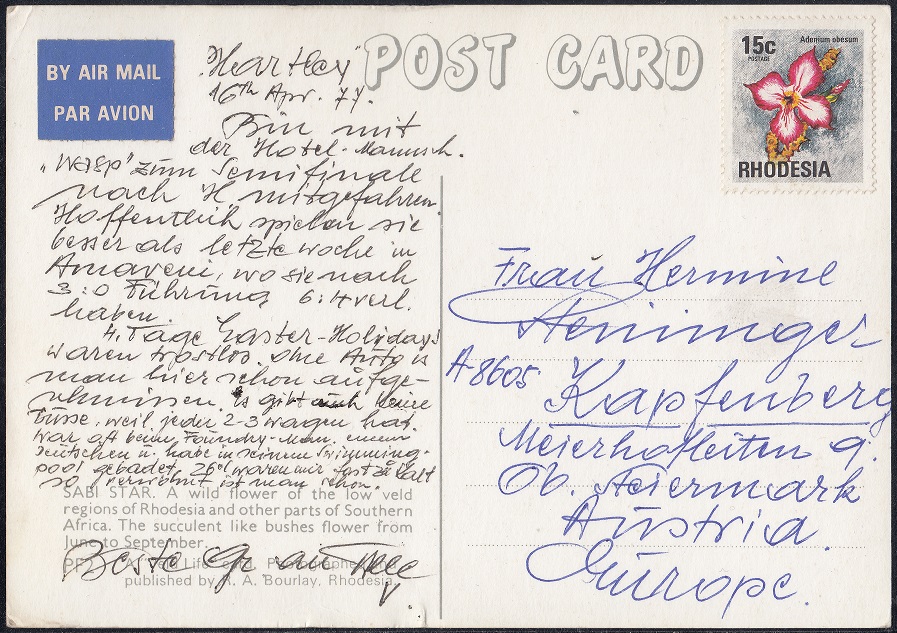 BY AIR MAIL
PAR AVION
POST CARD
15c
POSTAGE
Adenium obesum
RHODESIA
"Hartley"
16th Apr. 77.
Bin mit
der Hotel-Mannsch.
„Wasp" zum Semifinale
nach H mitgefahren
Hoffentlich spielen sie
besser als letzte woche in
Amaveni, wo sie nach
3:0 Führung 6:4 verl.
haben.
4. Tage Easter-Holidays
waren trostlos. Ohne Auto is
man hier schon aufge-
schmissen. Es gibt auch keine
Busse, weil jeder 2-3 wagen hat.
war oft beim Foundry-Man. einem
Deutschen u. habe in seinem Swimming-
pool gebadet. 26° waren mir fast zu kalt
so verwöhnt ist man schon.
Beste Gr. an alle
V.
SABI STAR. A wild flower of the low veld
regions of Rhodesia and other parts of Southern
Africa. The succulent like bushes flower from
June to September.
PF2
published by R. A. Bourlay, Rhodesia.
Frau Hermine
Heninger
A-8605 Kapfenberg
Meierhofleiten 9.
Ob. Steiermark
Austria.
Europe.